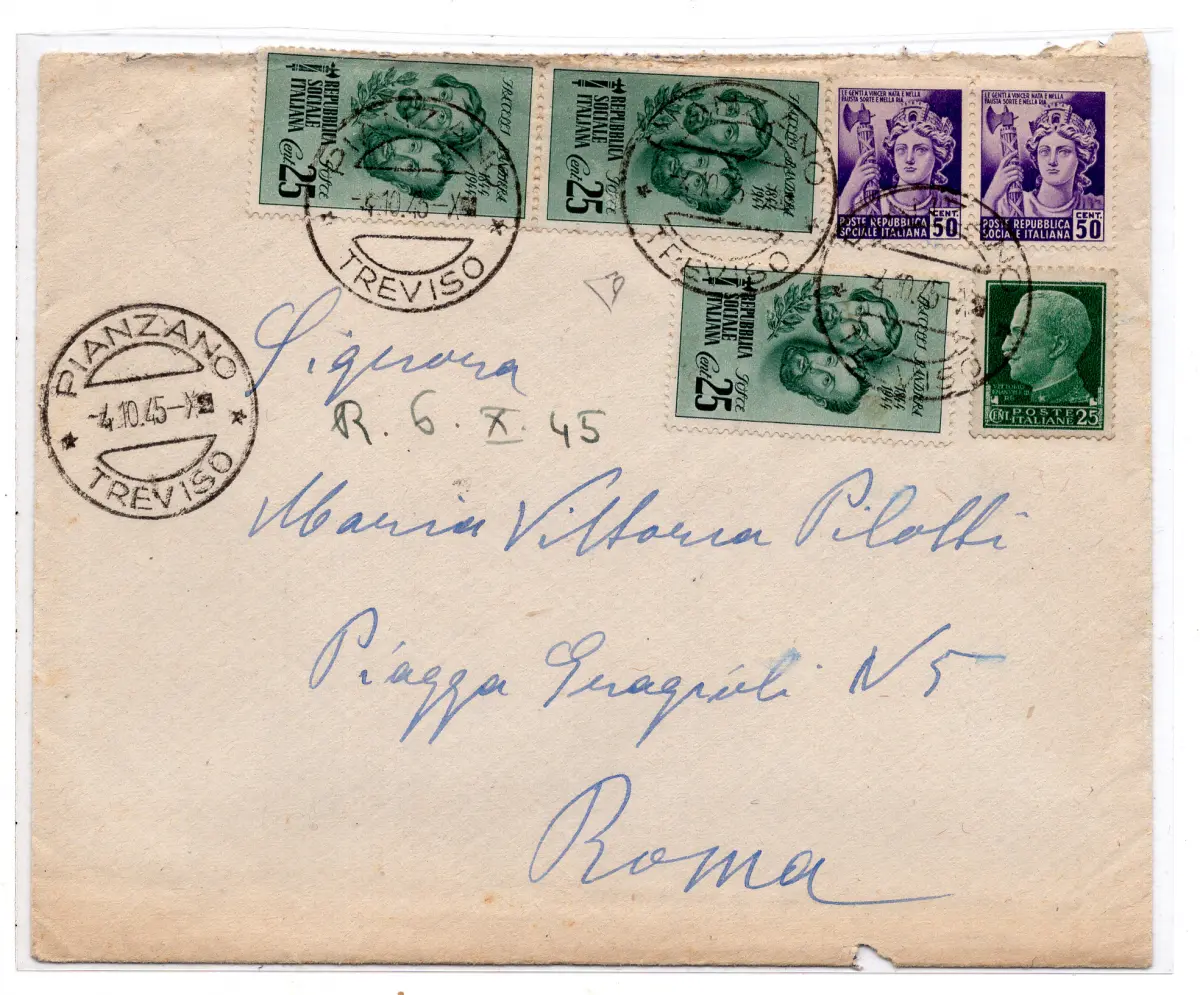 REPUBBLICA
SOCIALE
ITALIANA
Cent 25
REPUBBLICA
SOCIALE
ITALIANA
Cent 25
1844
1944
LE GENTI A VINCER NATA E NELLA
FAUSTA SORTE E NELLA RIA
POSTE REPUBBLICA
SOCIALE ITALIANA
CENT. 50
LE GENTI A VINCER NATA E NELLA
FAUSTA SORTE E NELLA RIA
POSTE REPUBBLICA
SOCIALE ITALIANA
CENT. 50
-4.10.45-X
TREVISO
TREVISO
REPUBBLICA
SOCIALE
ITALIANA
Cent 25
1844
1944
POSTE
CENT. ITALIANE 25
PIANZANO
-4.10.45-X
TREVISO
Signora
R. 6. X. 45
Maria Vittoria Pilotti
Piazza N 5
Roma